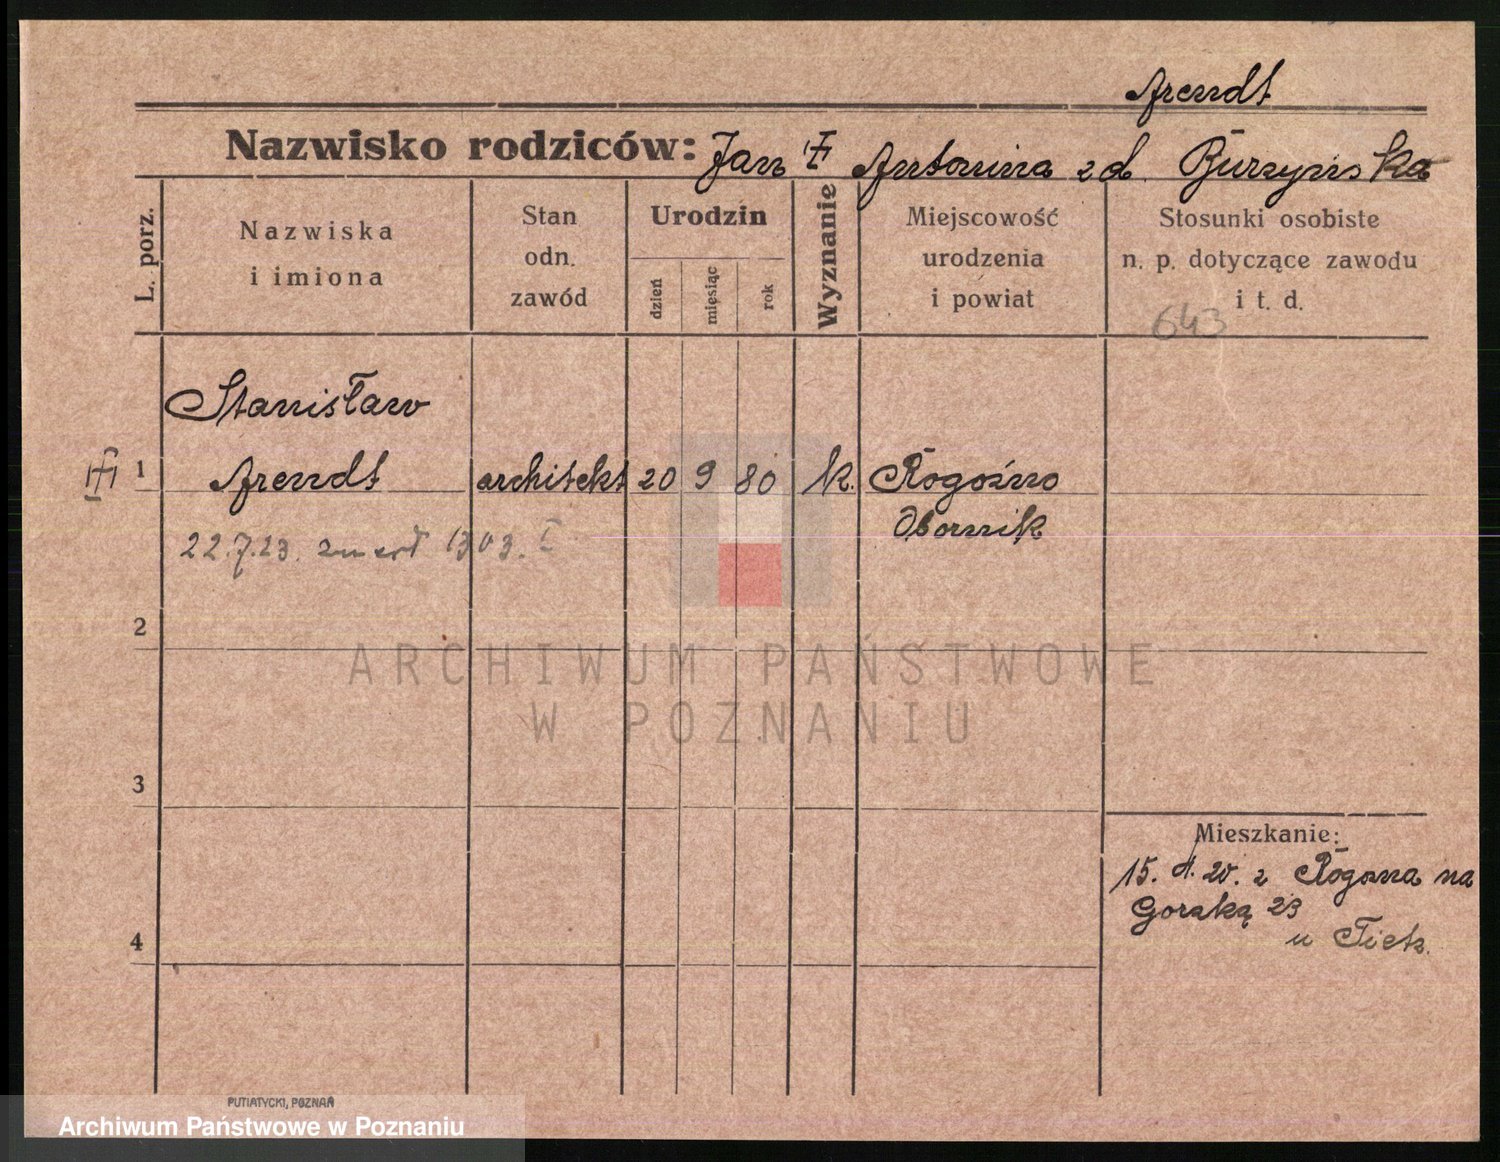 Arendt
Nazwisko rodziców: Jan Antonina zd. Burzyńska
L. porz.
Nazwiska
i imiona
Stan
odn.
zawód
Urodzin
dzień
miesiąc
rok
Wyznanie
Miejscowość
urodzenia
i powiat
Stosunki osobiste
n. p. dotyczące zawodu
i t. d.
643
Stanisław
1 Arendt architekt 20 9 80 k. Rogoźno
Obornik
22.7.23. zmarł 1303. I
2
ARCHIWUM PAŃSTWOWE
W POZNANIU
3
Mieszkanie:
15. 20. z Rogozna na
23
4
u Tietz.
PUTIATYCKI, POZNAŃ
Archiwum Państwowe w Poznaniu